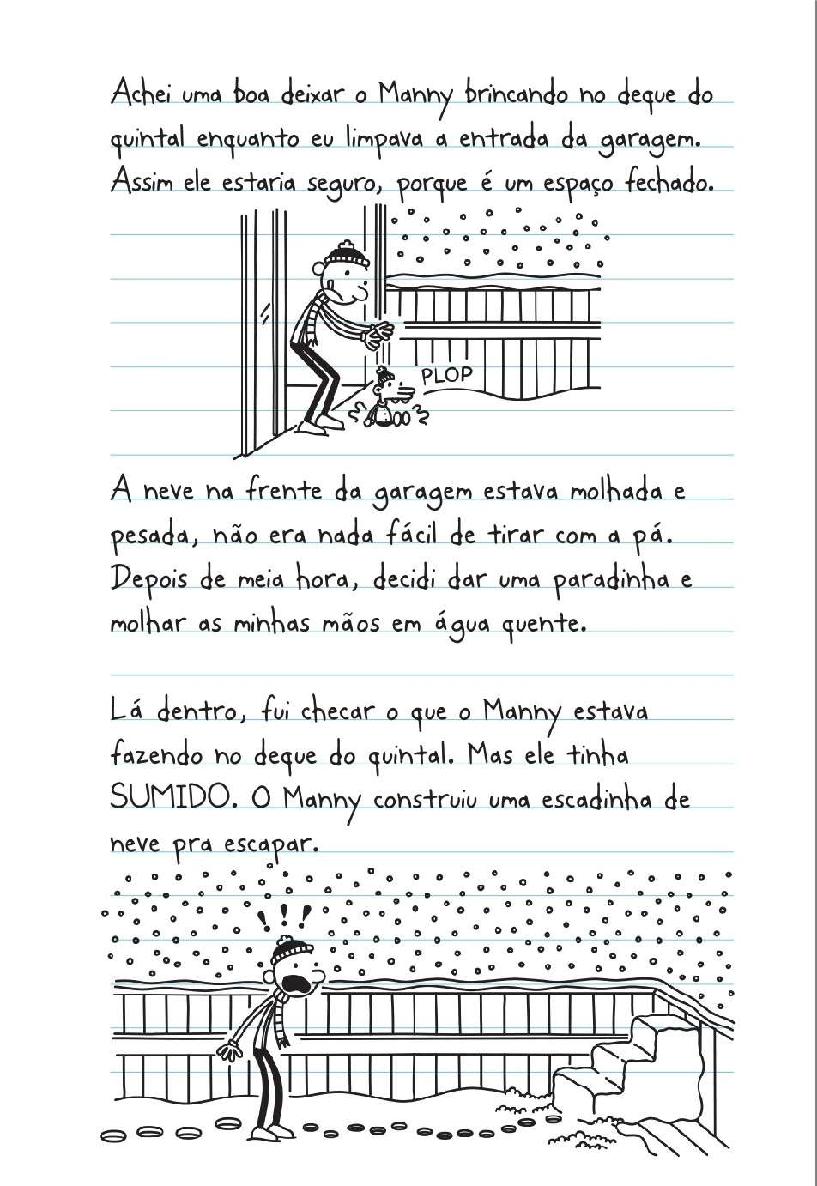 Achei uma boa deixar o Manny brincando no deque do
quintal enquanto eu limpava a entrada da garagem.
Assim ele estaria seguro, porque é um espaço fechado.
PLOP
A neve na frente da garagem estava molhada e
pesada, não era nada fácil de tirar com a pá.
Depois de meia hora, decidi dar uma paradinha e
molhar as minhas mãos em água quente.
Lá dentro, fui checar o que o Manny estava
fazendo no deque do quintal. Mas ele tinha
SUMIDO. O Manny construiu uma escadinha de
neve pra escapar.
!!!